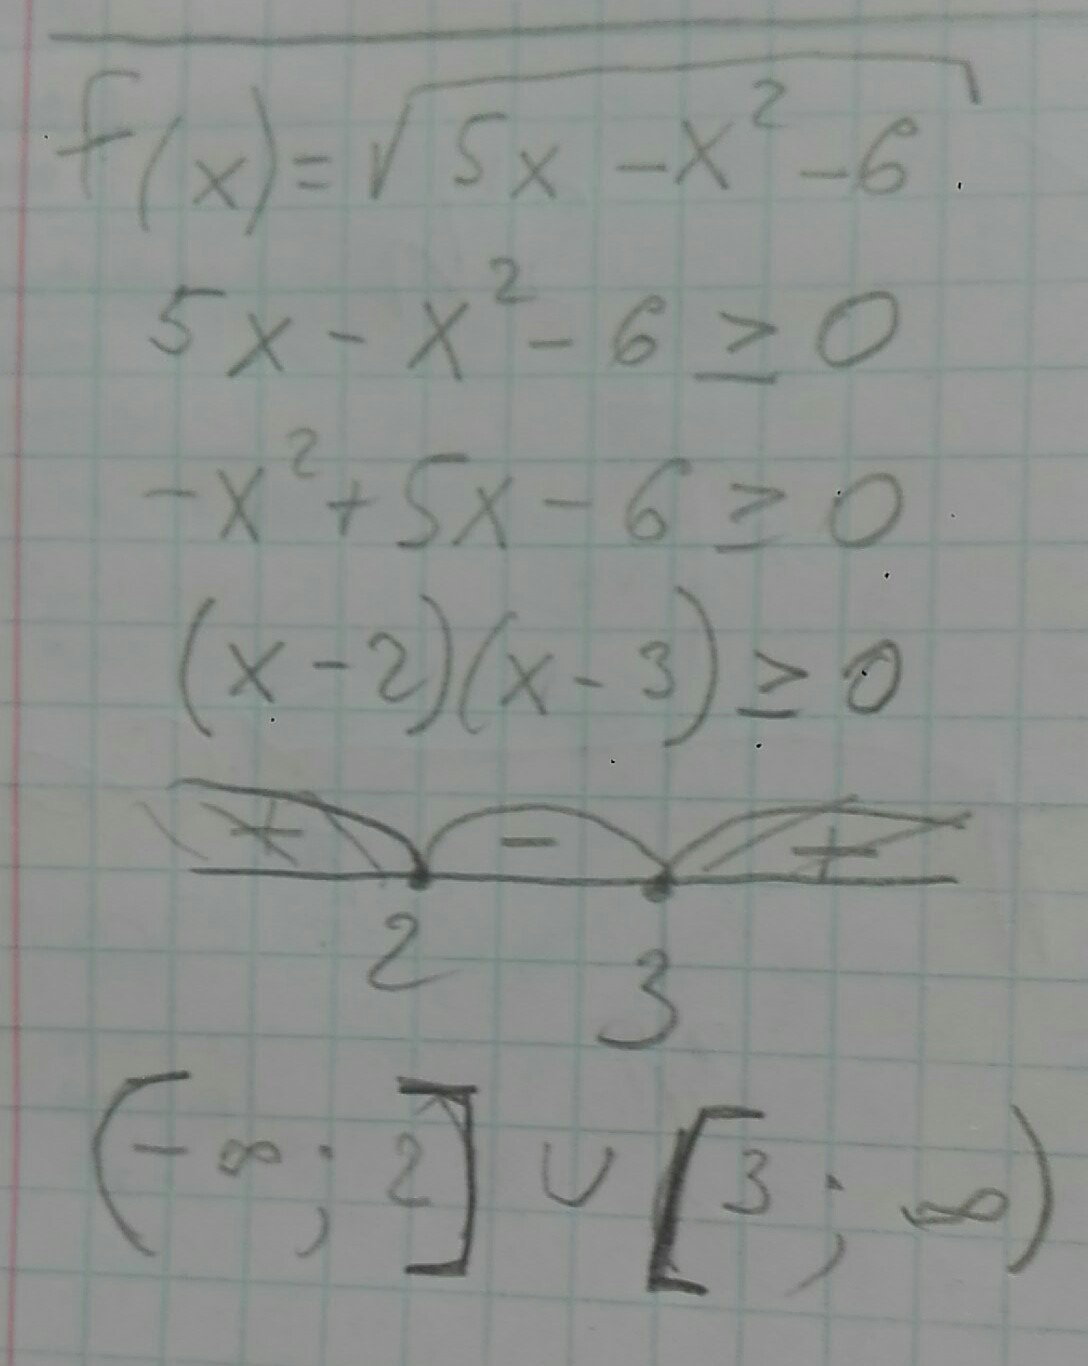 f(x)=√5x-x²-6
5x-x²-6≥0
-x²+5x-6≥0
(x-2)(x-3)≥0
+ - +
2 3
(-∞; 2] ∪ [3; ∞)